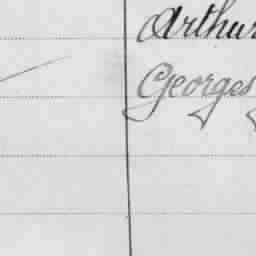 Arthur
Georges